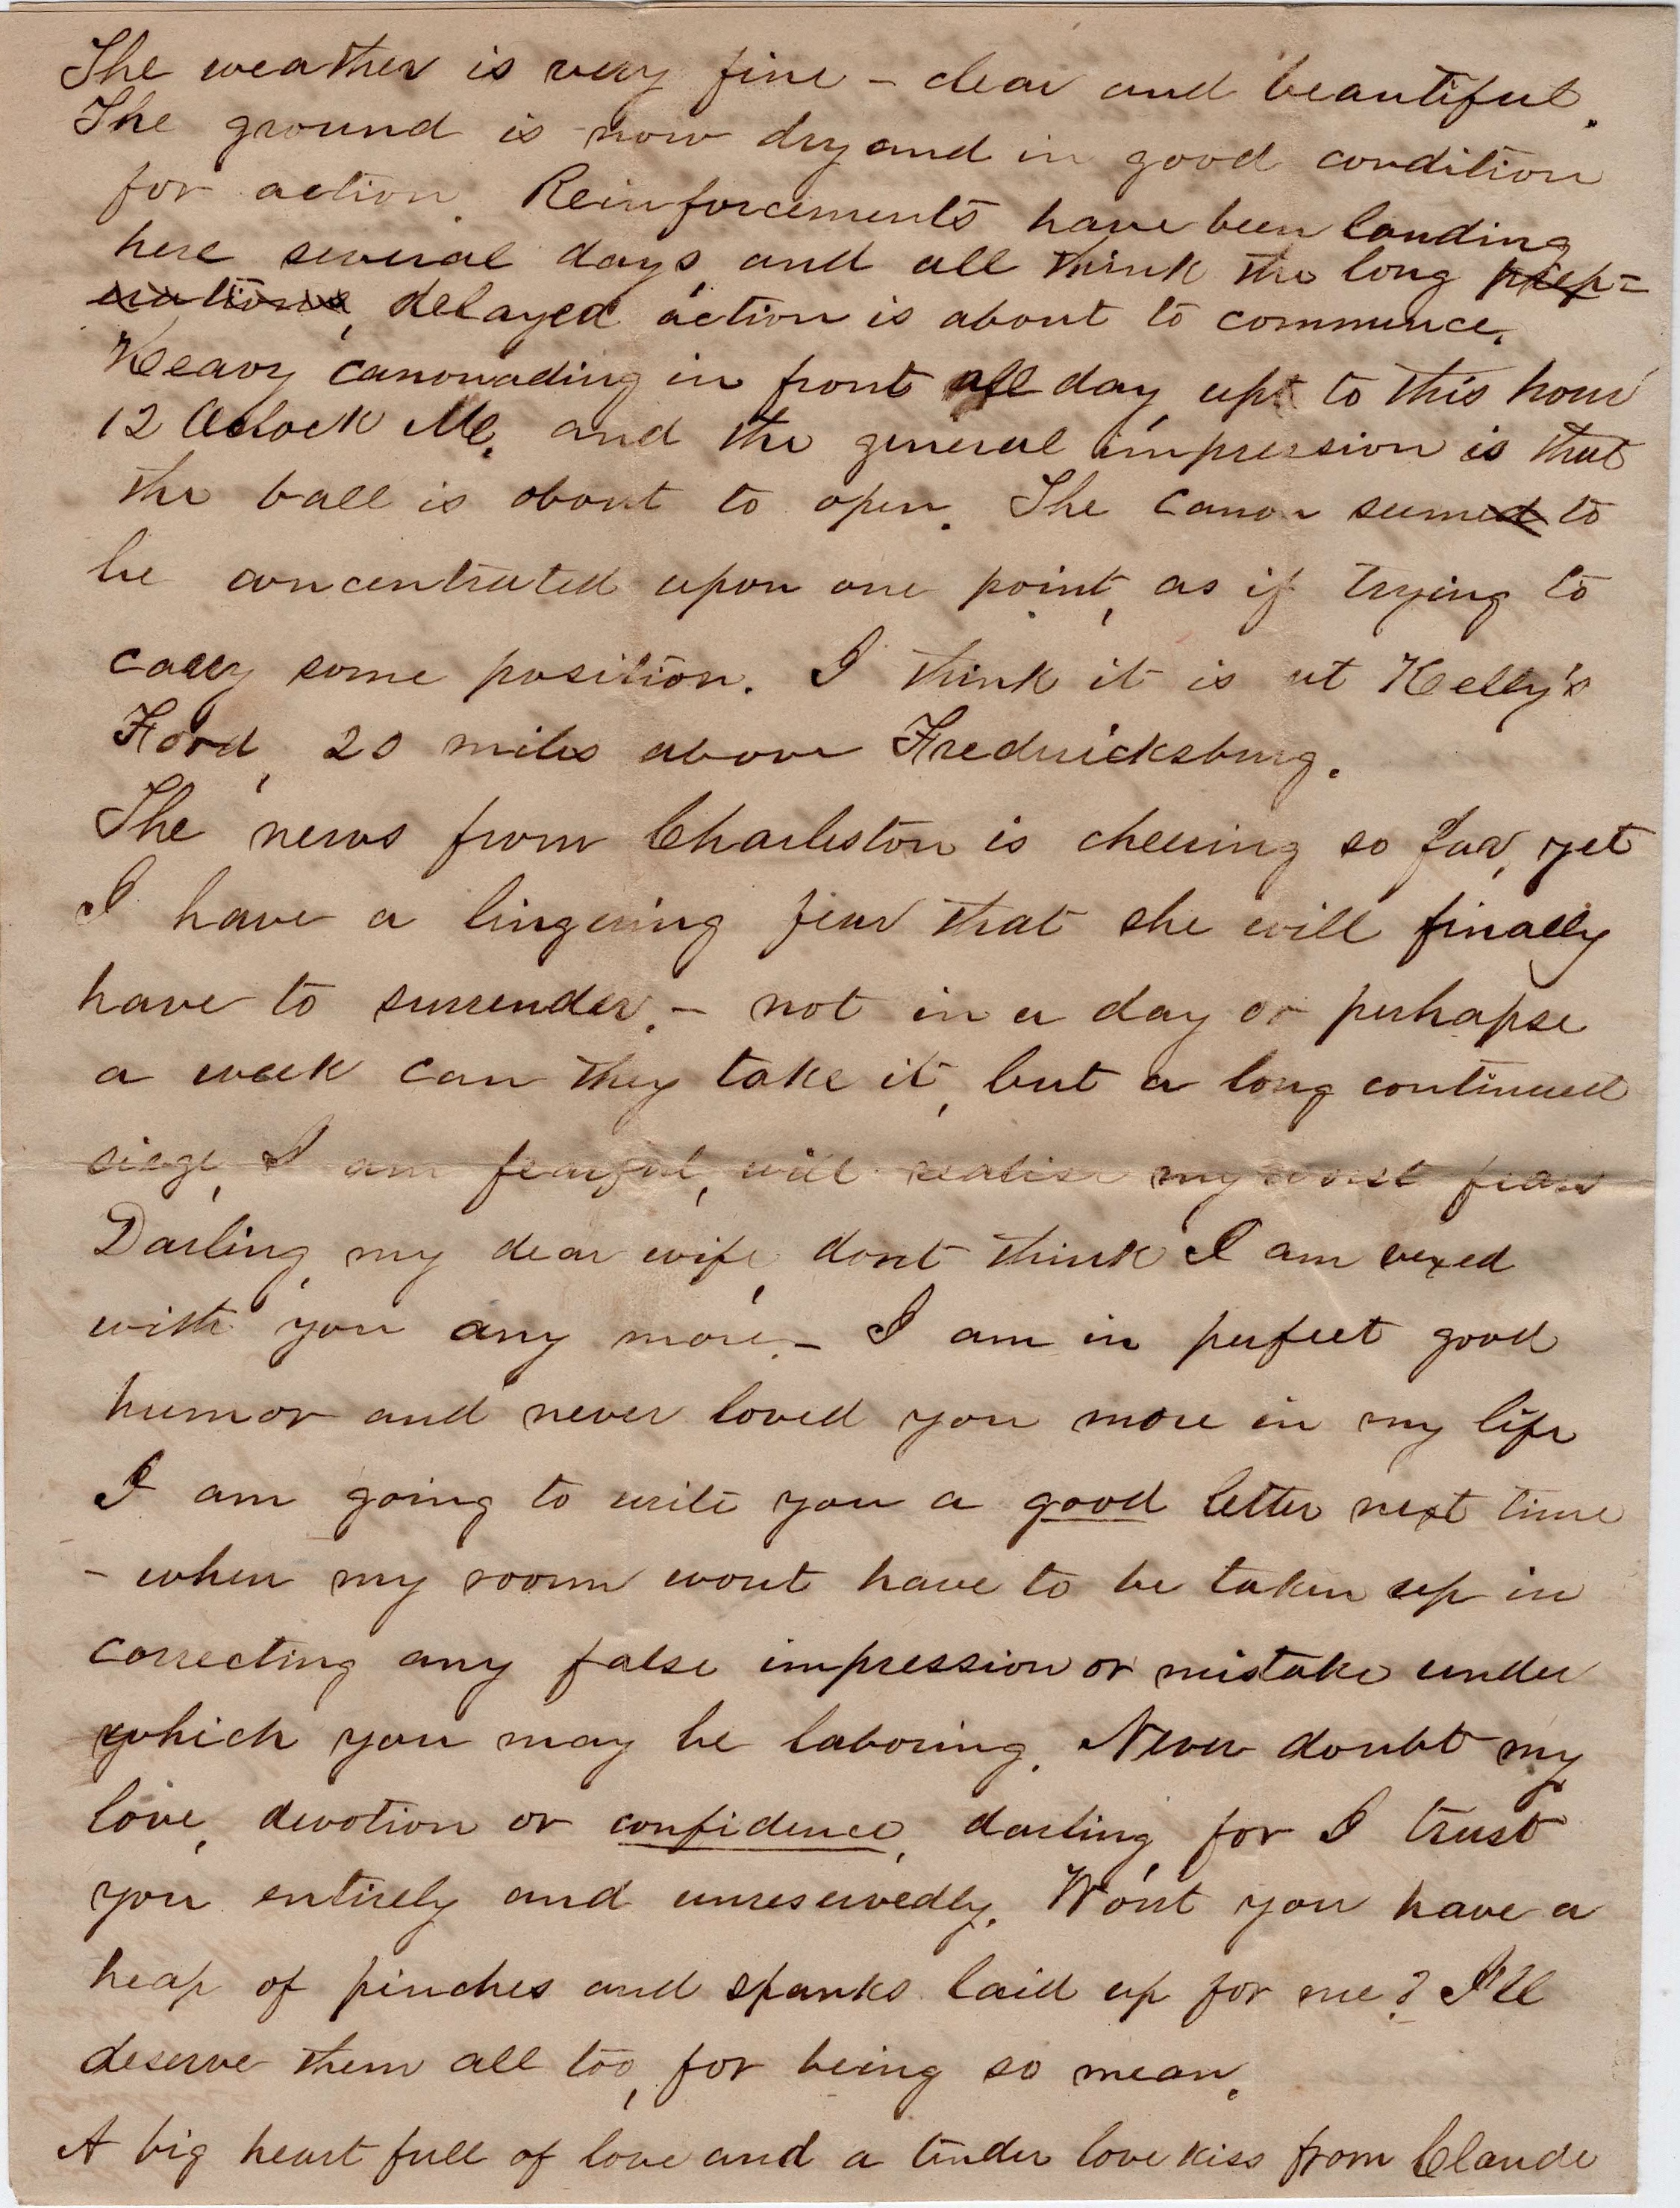 The weather is very fine – clear and beautiful.
The ground is now dry and in good condition
for action. Reinforcements have been landing
here several days, and all think the long prep=
erations, delayed action is about to commence.
Heavy canonading in front all day, up to this hour
12 Oclock M. and the general impression is that
the ball is about to open. The canon seemed to
be concentrated upon one point, as if trying to
carry some position. I think it is at Kelly's
Ford, 20 miles above Fredericksburg.
The news from Charleston is cheering so far, yet
I have a lingering fear that she will finally
have to surrender. – not in a day or perhapse
a week can they take it, but a long continued
siege, I am fearful, will realise my worst fears
Darling, my dear wife, dont think I am vexed
with you any more. – I am in perfect good
humor and never loved you more in my life
I am going to write you a good letter next time
– when my room wont have to be taken up in
correcting any false impression or mistake under
which you may be laboring. Never doubt my
love, devotion or confidence, darling, for I trust
you entirely and unreservedly. Wont you have a
heap of pinches and spanks laid up for me? I'll
deserve them all too, for being so mean.
A big heart full of love and a tender love kiss from Claude